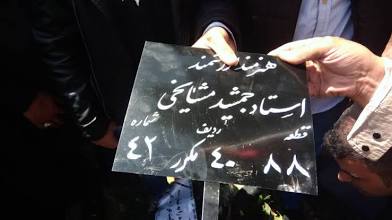 هنرمند ارزشمند
استاد جمشید مشایخی
قطعه ردیف شماره
۸۸ ۴۰ مکرر ۴۲